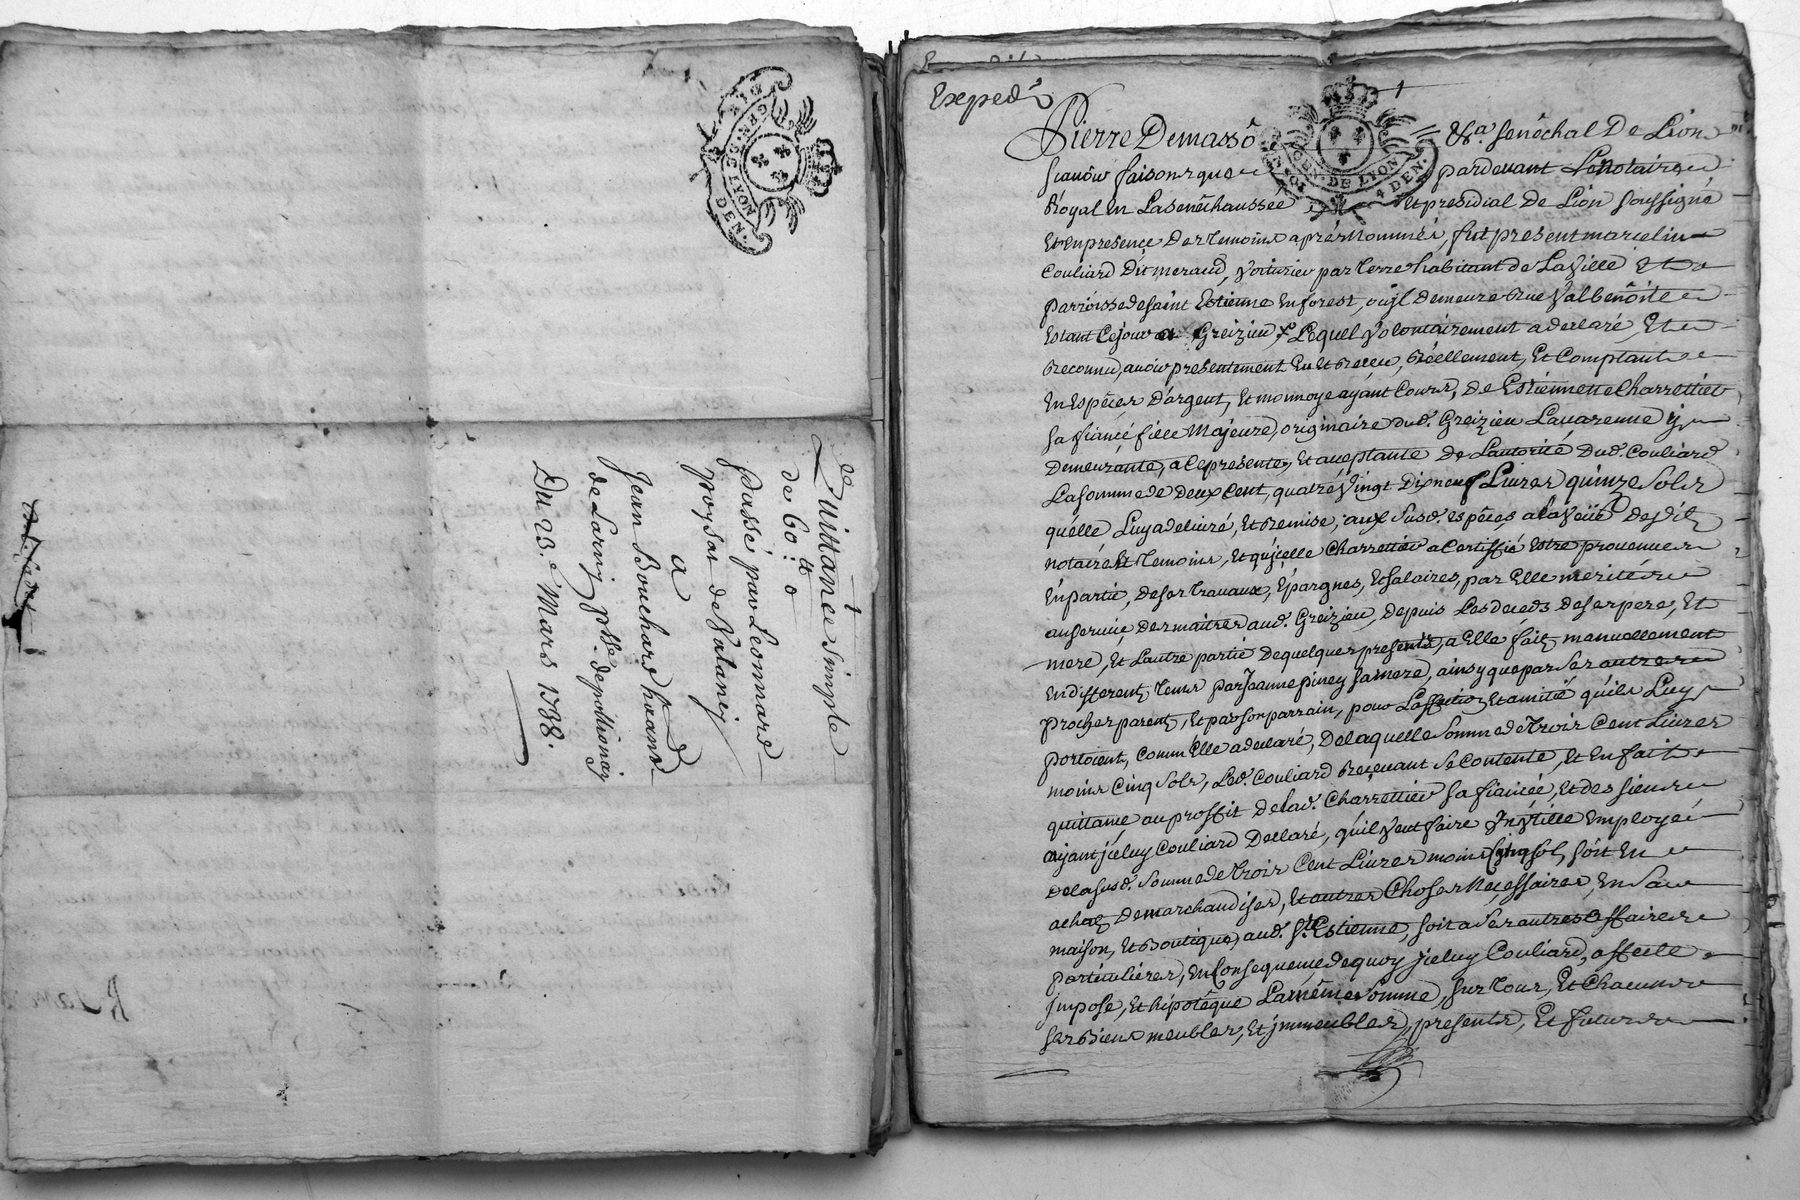 Quittance simple
de 60ᵗᵗ
passé par Leonnard
poysat de Valancy
a
Jean Bouchard
de Larny psse. depollionay
Du 23.e Mars 1738.
GEN. DE LYON
DEN.
Exped.
Pierre Demasso &a. senéchal De Lion
GEN. DE LYON
4 DEN.
scavoir faisons que pardevant Le Notaire
Royal en La senéchaussée et presidial de Lion soussigné
Et en presence Des temoins aprés Nommés, fut present marcelin
Couliard dit meraud, voiturier par terre habitant de La Ville Et
parroisse de saint Estienne en forest, ou jl demeure Rue Valbenoite
Estant Cejour a Greizieu, Lequel Volontairement a declaré, Et
Reconnu, avoir presentement Eu et Receu, Réellement, Et Comptant
En Espéces D'argent, Et monnoye ayant Cours, de Estiennette Charrettier
sa fiancé fille Majeure, originaire dud. Greizieu Lavarenne y
Demeurante, a Ce presente, Et acceptante De L'autorité Dud. Couliard
La somme de Deux Cent, quatre Vingt Dix neuf Livres quinze Sols
qu'elle Luy a delivré, Et Remise, aux Susd. espéces a la Veüe Desdits
notaire Et temoins, Et qu'jcelle Charrettier a Certiffié Estre provenue
En partie, De ses travaux, Epargnes, Et salaires, par Elle merités
au service Des maitres aud. Greizieu, Depuis Les deceds de ses pere, Et
mere, Et L'autre partie De quelques presents, a Elle faits manuellement
En differents tems par Jeanne piney sa mere, ainsy que par Ses autres
proches parents, Et par son parrain, pour L'affection Et amitié qu'ils Luy
portoient, Comm'Elle a declaré, De laquelle Somme de Trois Cent Livres
moins Cinq Sols, Led. Couliard Reçevant Se Contente, Et En fait
quittance au proffit De lad. Charrettier sa fiancée, Et des siens
ayant jceluy Couliard Declaré, qu'il Veut faire Vn Vtille Employé
De la susd. Somme de Trois Cent Livres moins Cinq sols, soit En
achats De marchandises, Et autres Choses Neçessaires, En sa
maison, Et Boutique, aud. St. Estienne, soit a Ses autres affaires
particulieres, En Consequence de quoy jceluy Couliard, affecte
Jmpose, Et hipotéque La même Somme, sur tous, Et Chacuns
ses Biens meubles, Et jmmeubles, presents, Et futurs